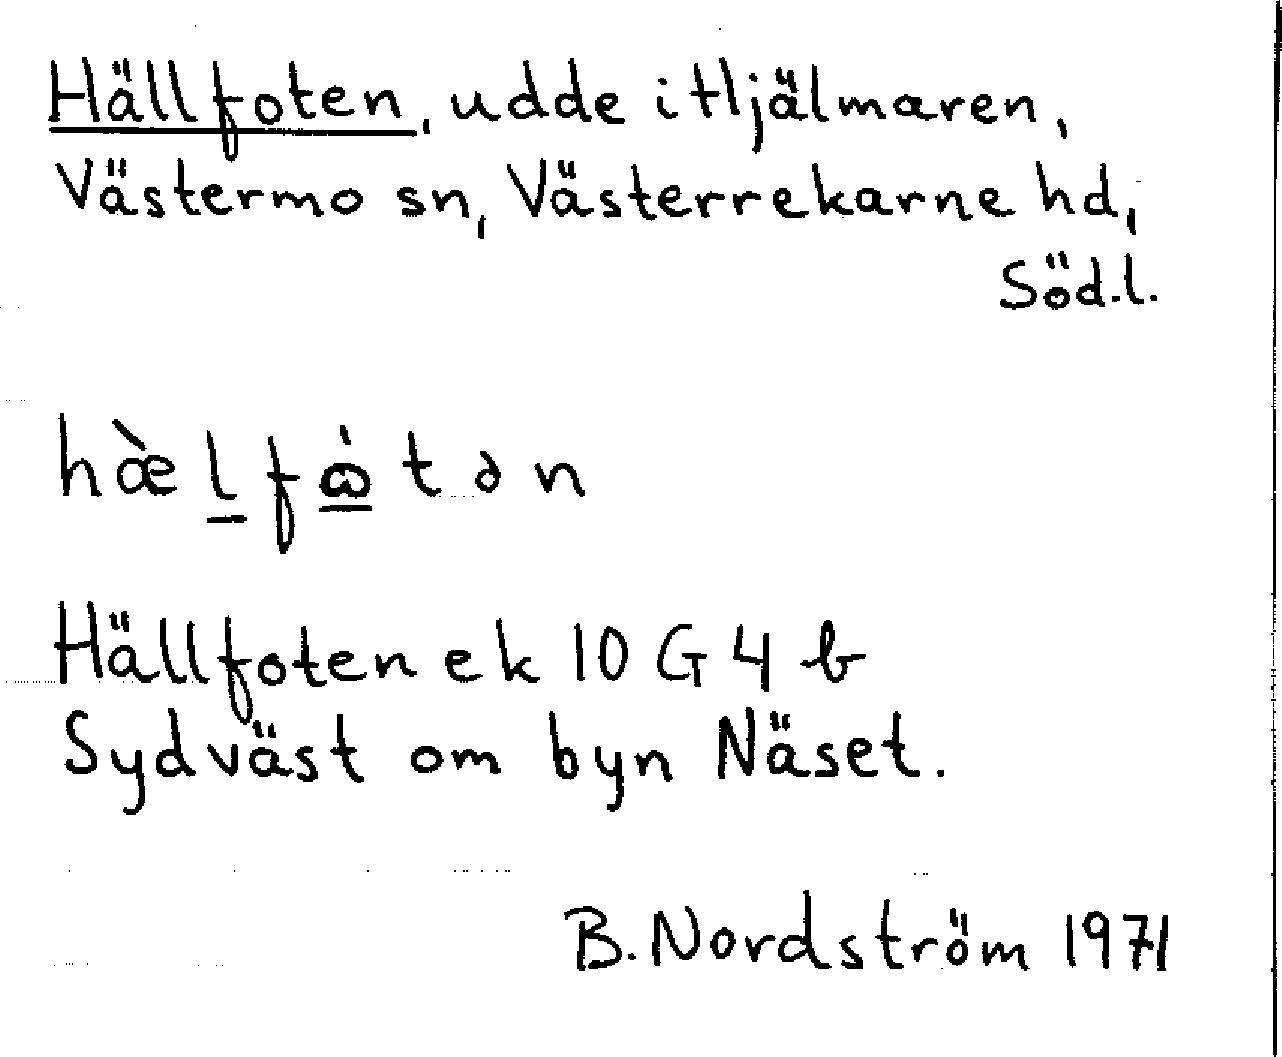 Hällfoten, udde i Hjälmaren,
Västermo sn, Västerrekarne hd,
Söd.l.
hæ̀l̲fω̲̇tən
Hällfoten ek 10 G 4 b
Sydväst om byn Näset.
B. Nordström 1971